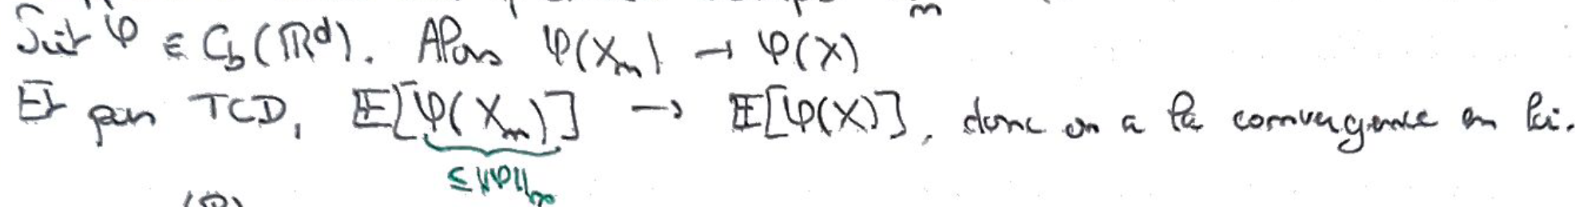 Soit φ ∈ C_b(ℝ^d). Alors φ(X_n) → φ(X)
Et par TCD, 𝔼[φ(X_n)] → 𝔼[φ(X)], donc on a la convergence en loi.
≤ ‖φ‖_∞